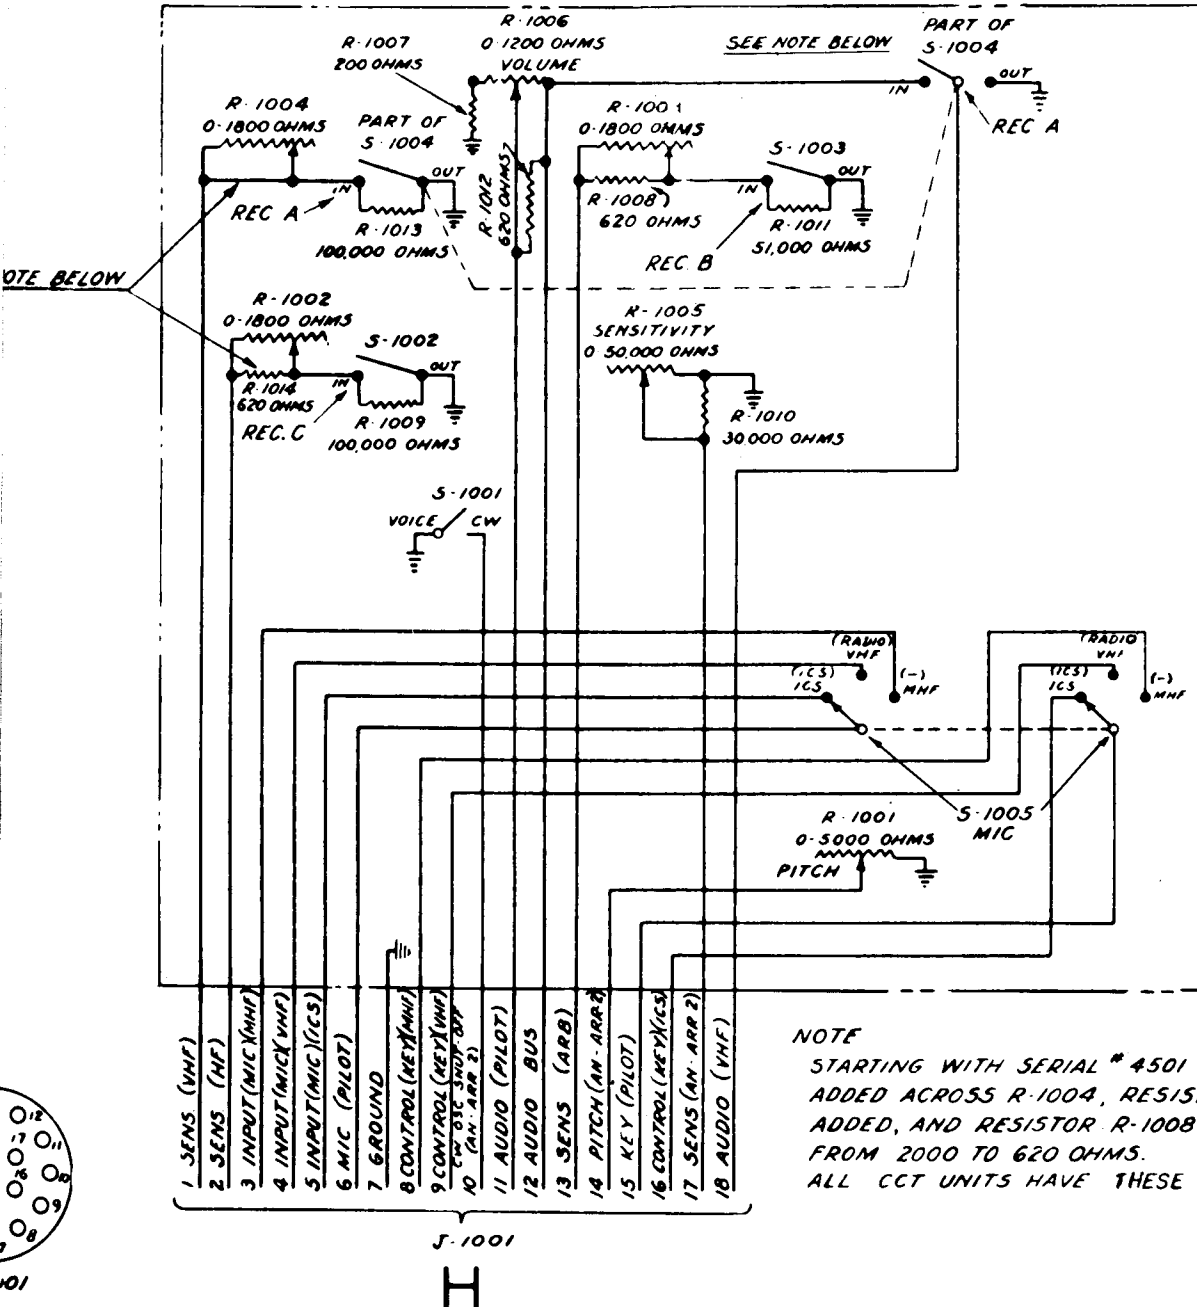 R-1006
0-1200 OHMS
VOLUME
R-1007
200 OHMS
SEE NOTE BELOW
PART OF
S-1004
IN
OUT
REC A
R-1004
0-1800 OHMS
PART OF
S-1004
OUT
IN
REC A
R-1013
100,000 OHMS
R-1012
620 OHMS
R-1001
0-1800 OHMS
S-1003
OUT
IN
R-1008
620 OHMS
R-1011
51,000 OHMS
REC. B
OTE BELOW
R-1002
0-1800 OHMS
S-1002
OUT
IN
R-1014
620 OHMS
REC. C
R-1009
100,000 OHMS
R-1005
SENSITIVITY
0-50,000 OHMS
R-1010
30,000 OHMS
S-1001
VOICE
CW
(RADIO)
VHF
(ICS)
ICS
(-)
MHF
(RADIO
VHF
(ICS)
ICS
(-)
MHF
S-1005
MIC
R-1001
0-5000 OHMS
PITCH
1 SENS (VHF)
2 SENS (HF)
3 INPUT(MIC)(MHF)
4 INPUT(MIC)(VHF)
5 INPUT(MIC)(ICS)
6 MIC (PILOT)
7 GROUND
8 CONTROL(KEY)(MHF)
9 CONTROL(KEY)(VHF)
CW OSC SHUT-OFF
10 (AN-ARR 2)
11 AUDIO (PILOT)
12 AUDIO BUS
13 SENS (ARB)
14 PITCH(AN-ARR2)
15 KEY (PILOT)
16 CONTROL(KEY)(ICS)
17 SENS(AN-ARR2)
18 AUDIO (VHF)
J-1001
H
NOTE
STARTING WITH SERIAL # 4501
ADDED ACROSS R-1004, RESIS
ADDED, AND RESISTOR R-1008
FROM 2000 TO 620 OHMS.
ALL CCT UNITS HAVE THESE
12
17
11
16
10
9
8
7
001